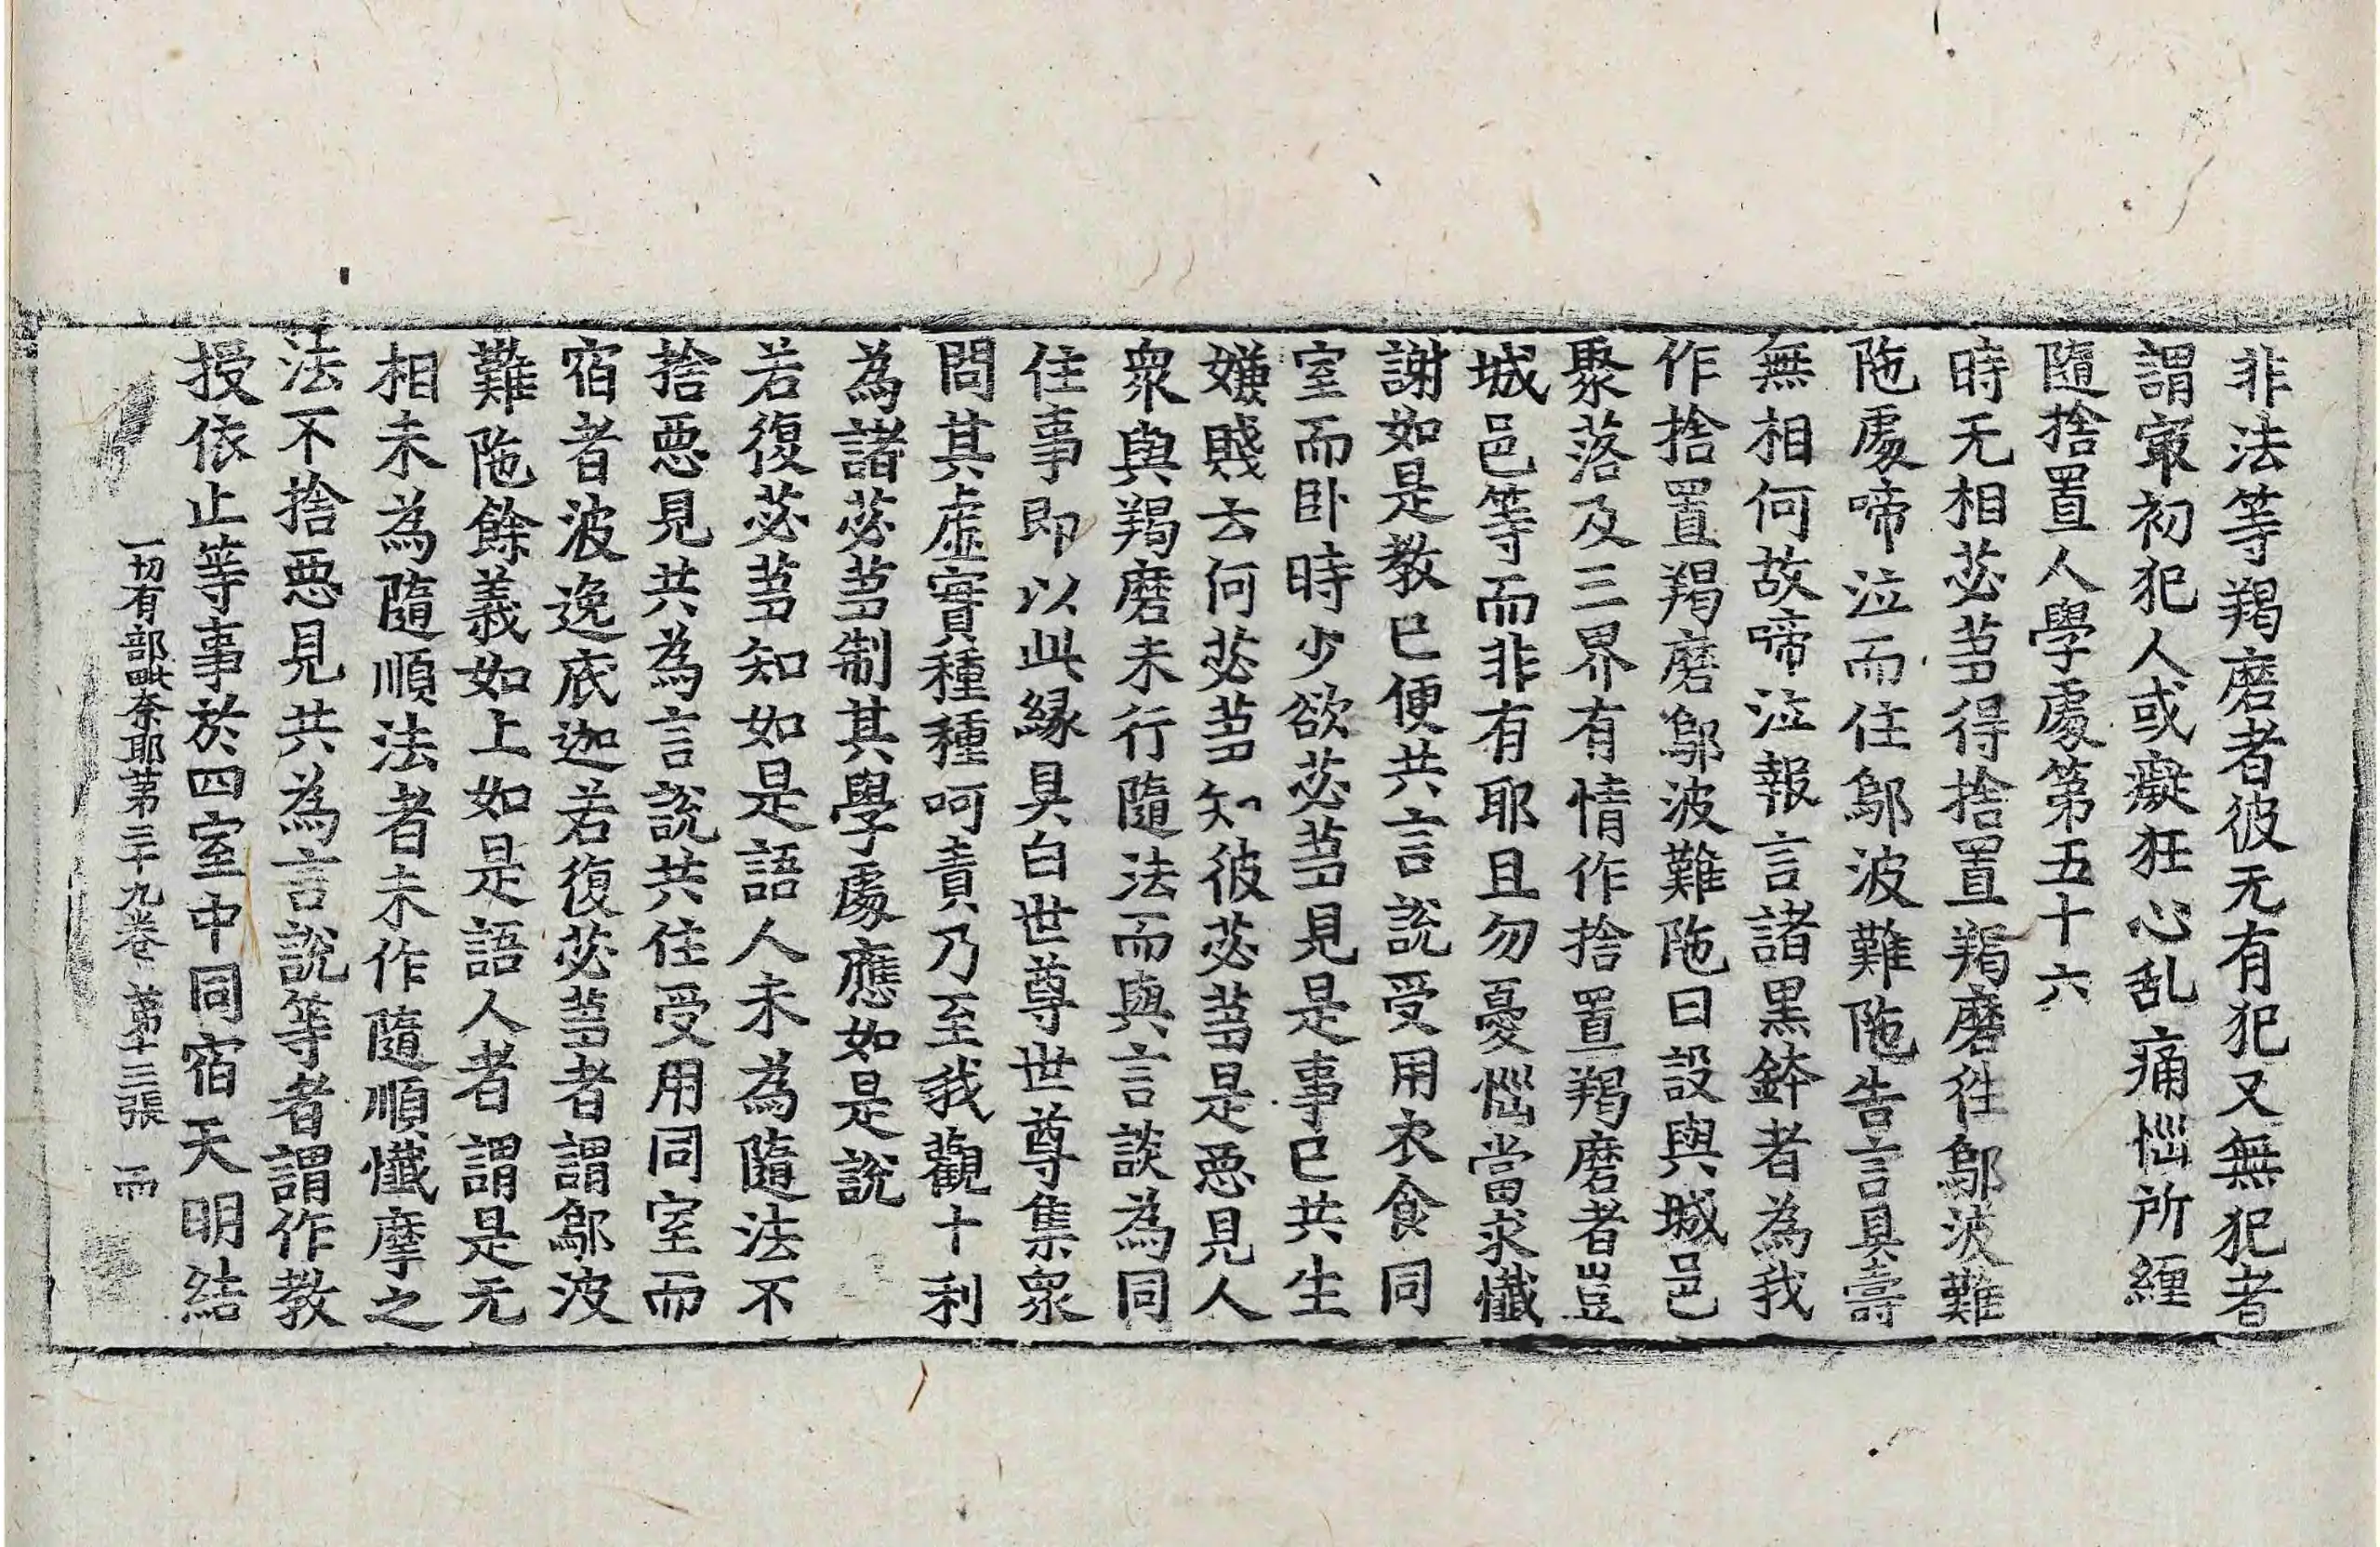 非法等羯磨者彼无有犯又無犯者
謂㝡初犯人或癡狂心乱痛惱所纒
隨捨置人學處第五十六
時无相苾芻得捨置羯磨徃鄔波難
陁處啼泣而住鄔波難陁告言具壽
無相何故啼泣報言諸黑鉢者為我
作捨置羯磨鄔波難陁曰設與城邑
聚落及三界有情作捨置羯磨者豈
城邑等而非有耶且勿憂惱當求懺
謝如是教已便共言說受用衣食同
室而卧時少欲苾芻見是事已共生
嫌賤云何苾芻知彼苾芻是惡見人
衆與羯磨未行隨法而與言談為同
住事即以此緣具白世尊世尊集衆
問其虛實種種呵責乃至我觀十利
為諸苾芻制其學處應如是說
若復苾芻知如是語人未為隨法不
捨惡見共為言說共住受用同室而
宿者波逸底迦若復苾芻者謂鄔波
難陁餘義如上如是語人者謂是无
相未為隨順法者未作隨順懺摩之
法不捨惡見共為言說等者謂作教
授依止等事於四室中同宿天明結
一切有部毗奈耶第三十九卷 第十三張 而